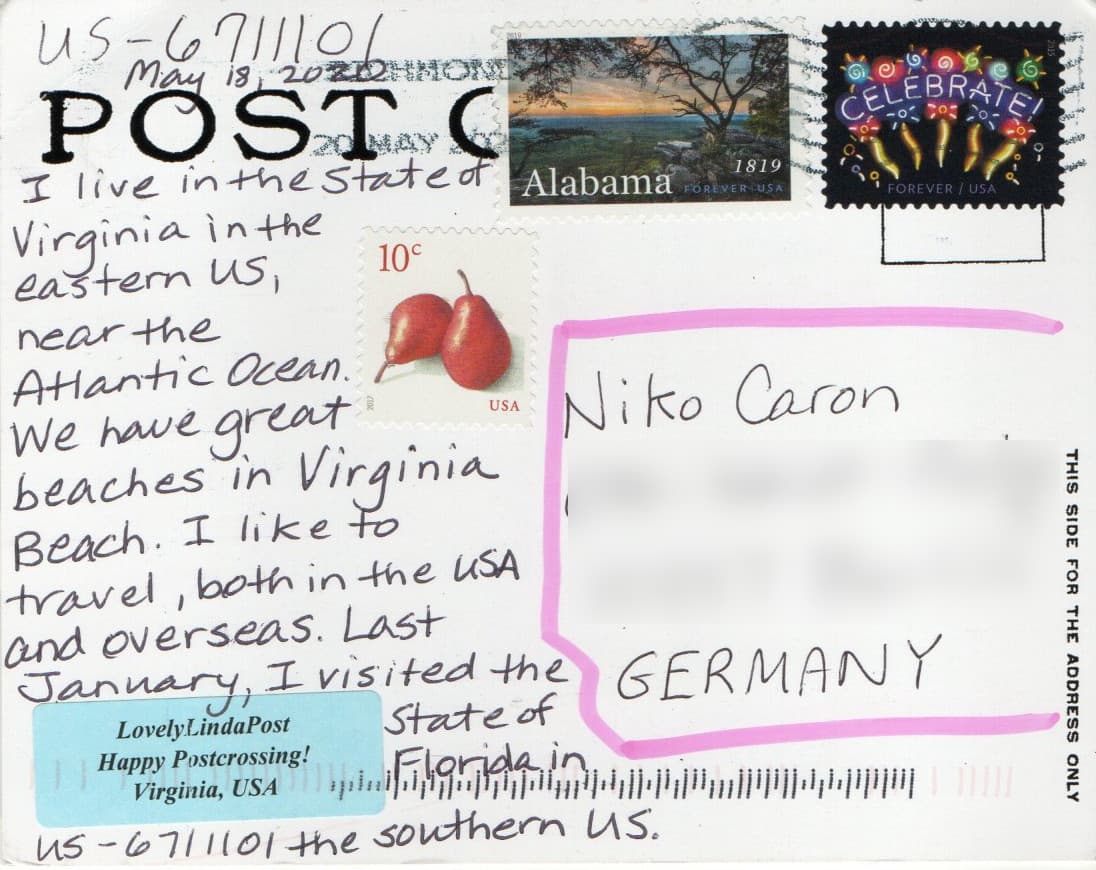 US-6711101
May 18, 2020
POST C
20 MAY
I live in the State of
Virginia in the
eastern US,
near the
Atlantic Ocean.
We have great
beaches in Virginia
Beach. I like to
travel, both in the USA
and overseas. Last
January, I visited the
State of
Florida in
US-6711101 the southern US.
LovelyLindaPost
Happy Postcrossing!
Virginia, USA
2019
Alabama
1819
FOREVER USA
CELEBRATE!
FOREVER / USA
10c
2017
USA
Niko Caron
GERMANY
THIS SIDE FOR THE ADDRESS ONLY